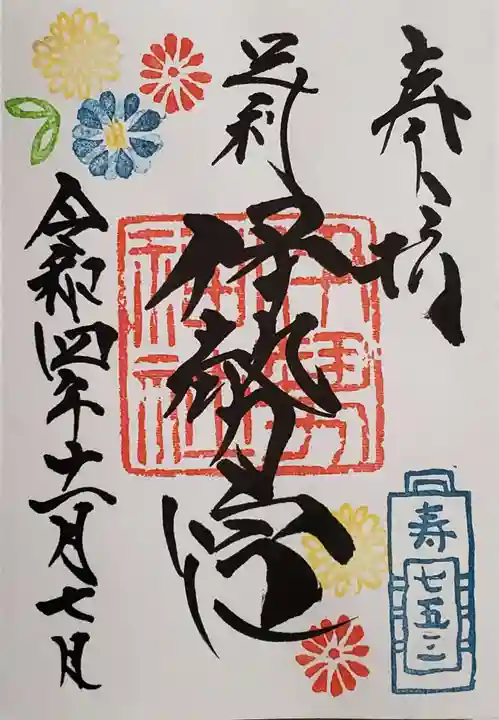 奉拝
足利
伊勢宮
令和四年十一月七日
寿
七五三